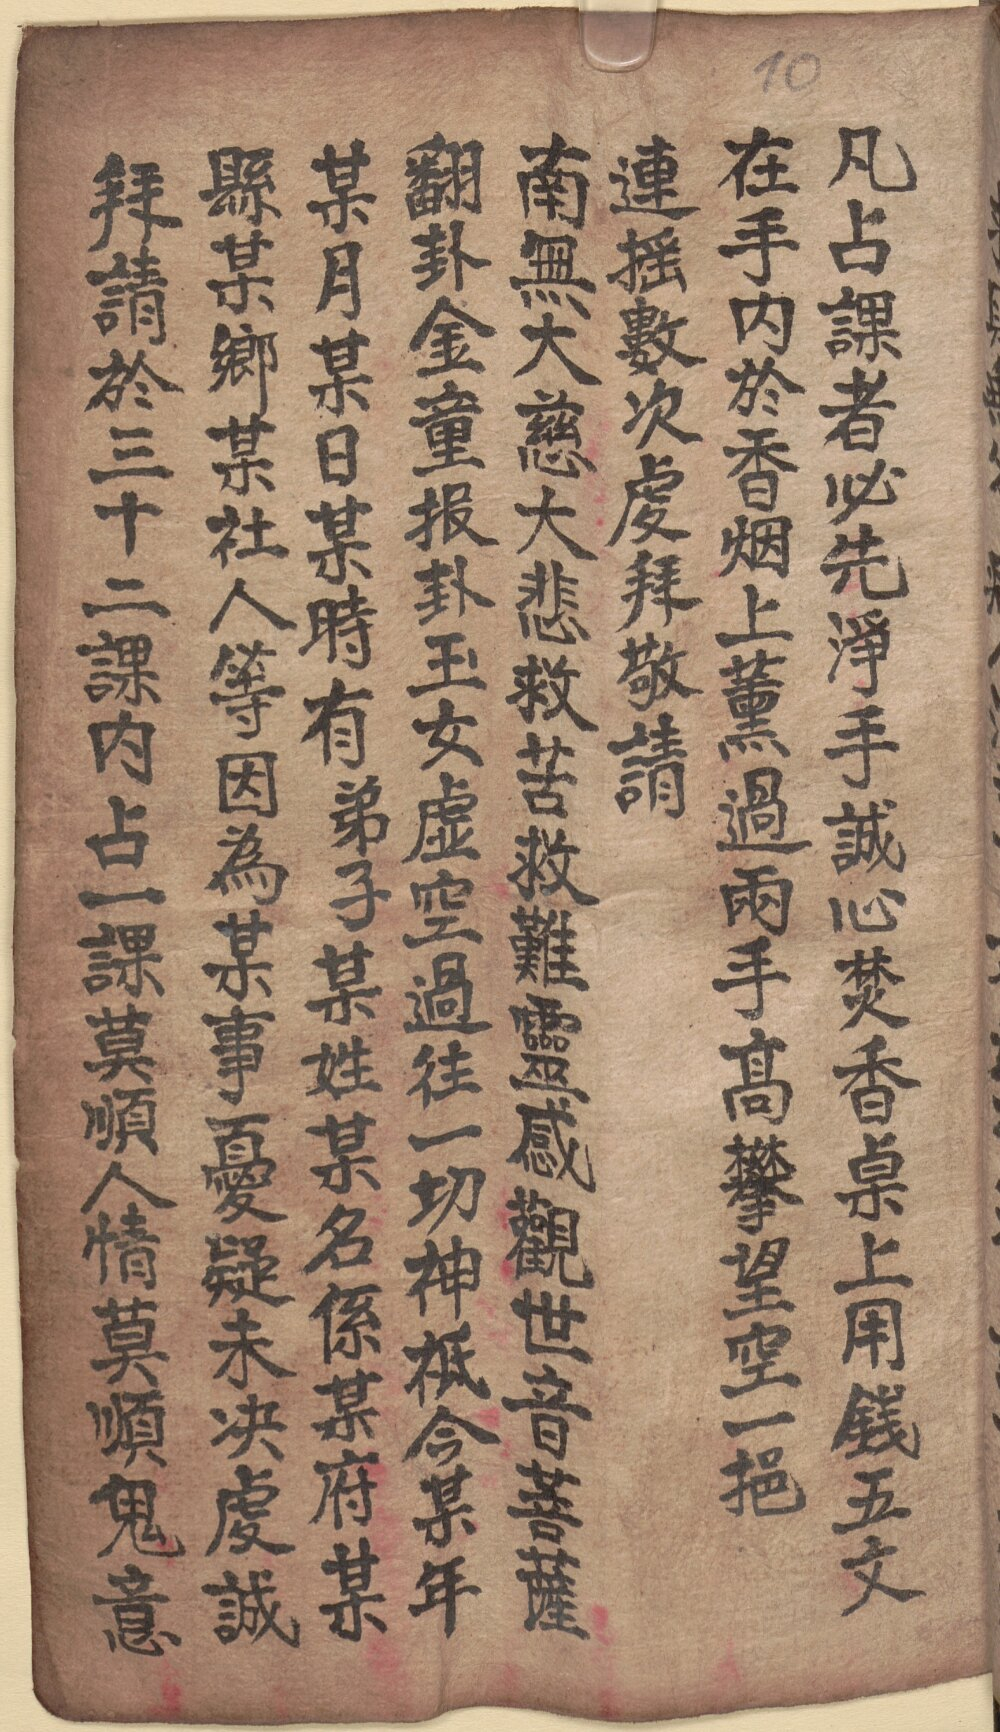 10
凡占課者必先淨手誠心焚香桌上用錢五文
在手内於香烟上薰過兩手高攀望空一挹
連摇數次虔拜敬請
南無大慈大悲救苦救難靈感觀世音菩薩
翻卦金童报卦玉女虚空過往一切神祇今某年
某月某日某時有弟子某姓某名係某府某
縣某鄉某社人等因為某事憂疑未决虔誠
拜請於三十二課内占一課莫順人情莫順鬼意